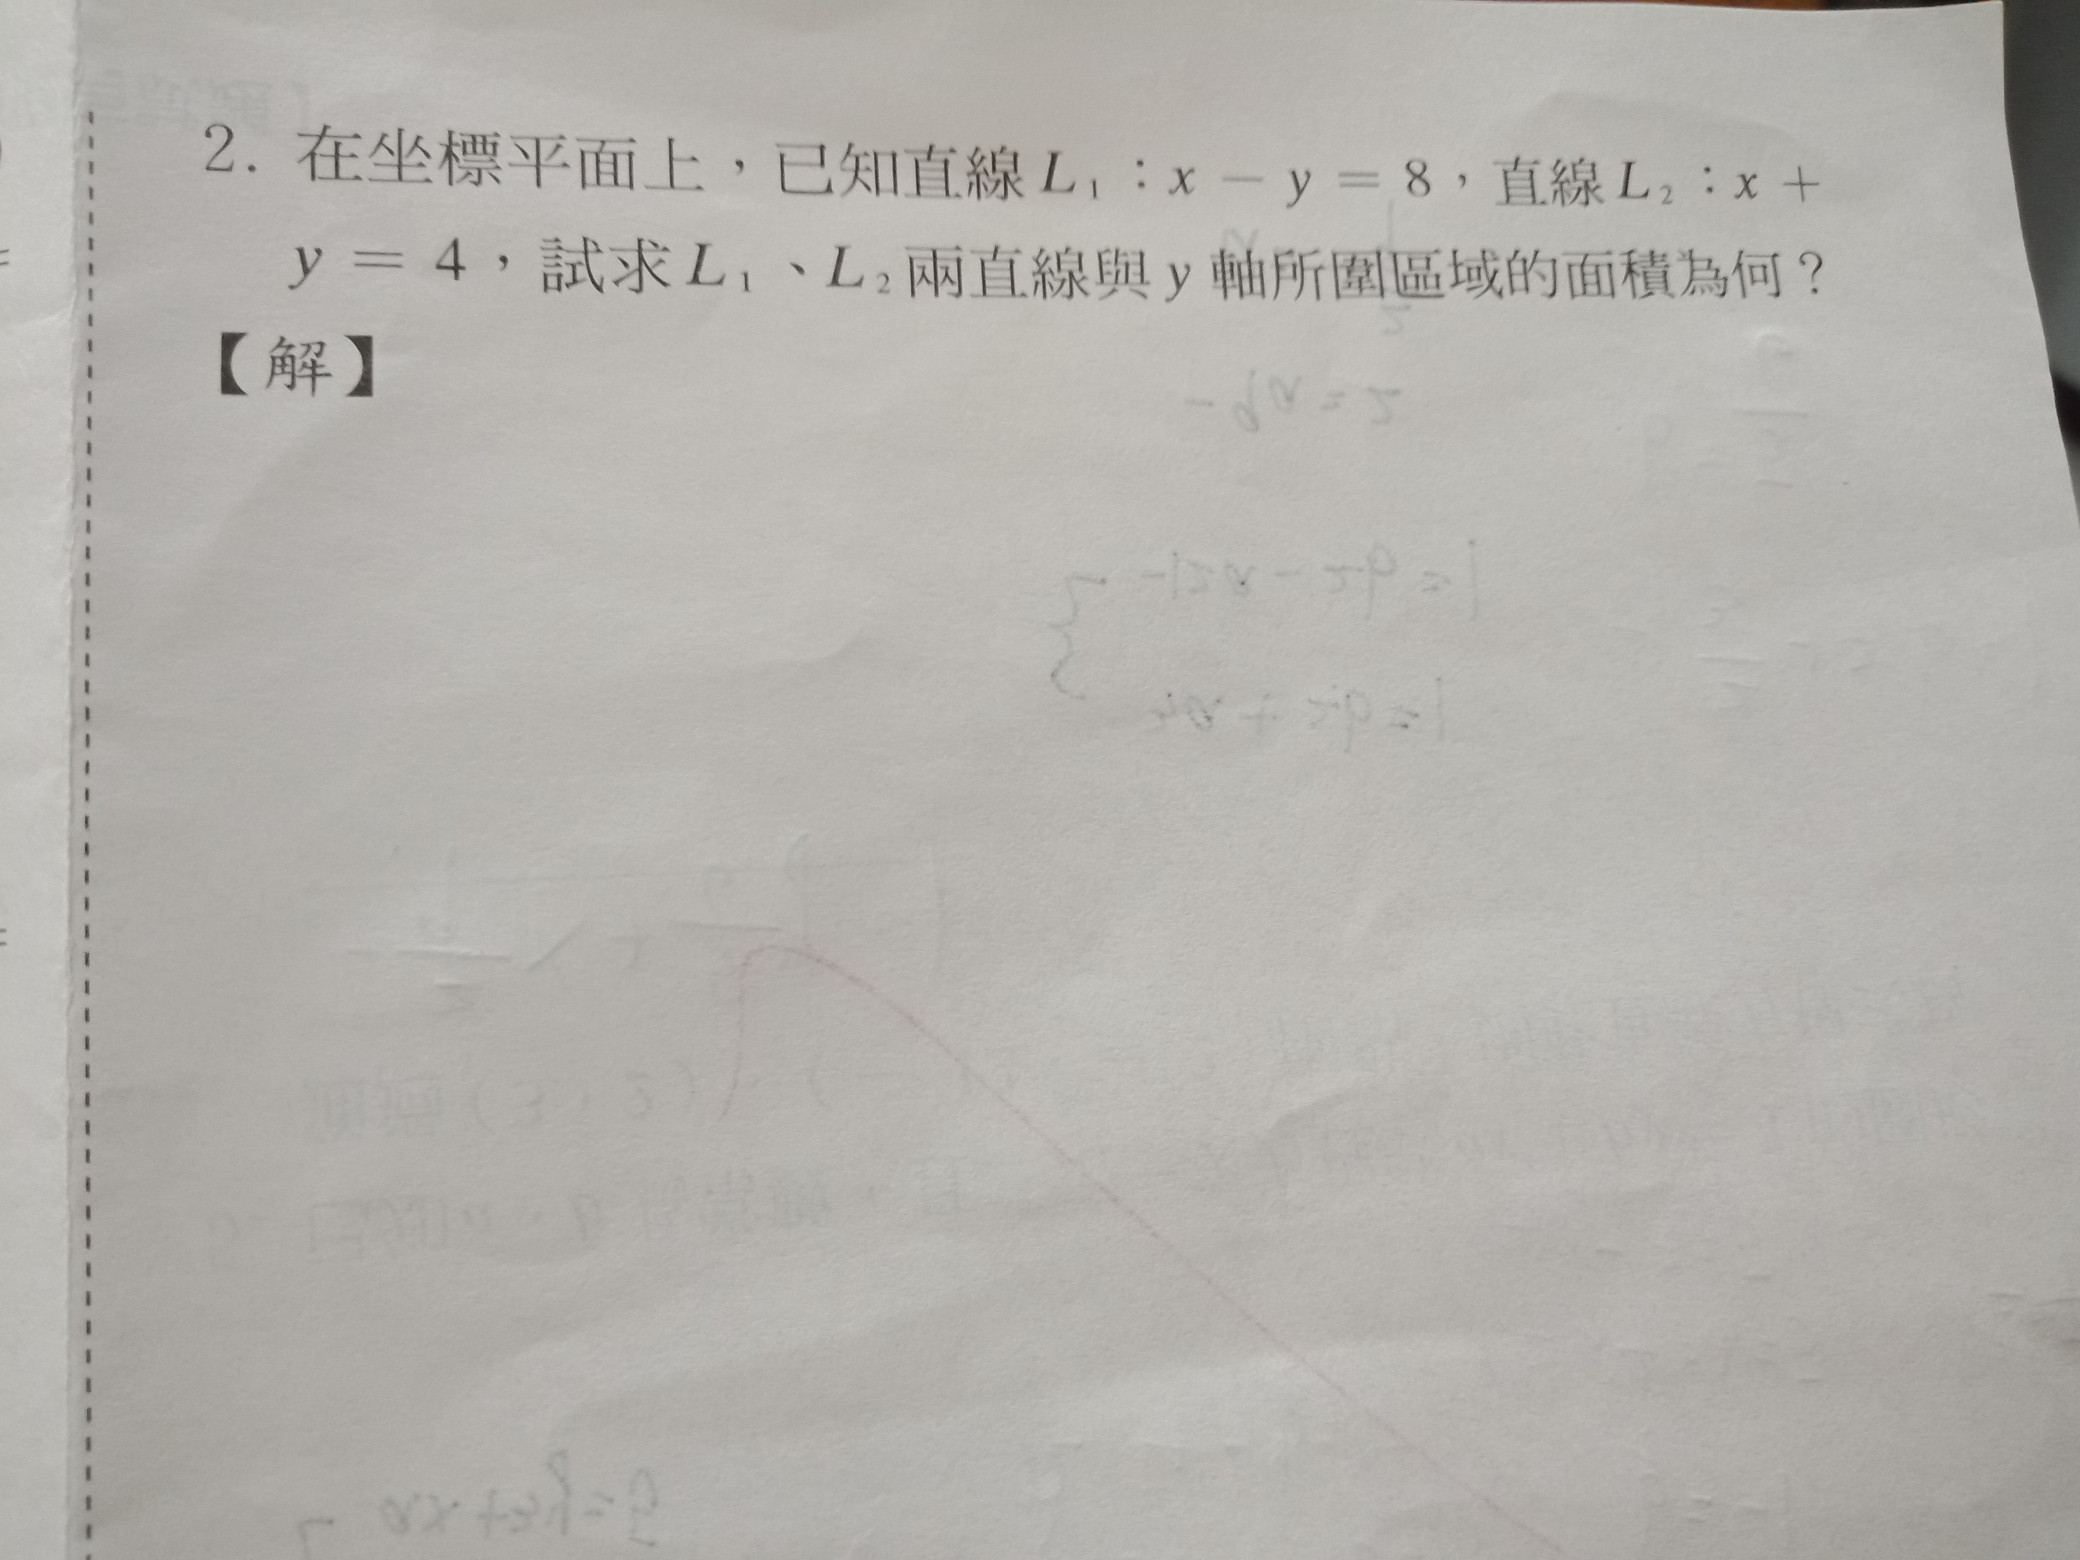 2. 在坐標平面上，已知直線L₁：x － y ＝ 8，直線L₂：x ＋
y ＝ 4，試求L₁、L₂兩直線與y軸所圍區域的面積為何？
【解】